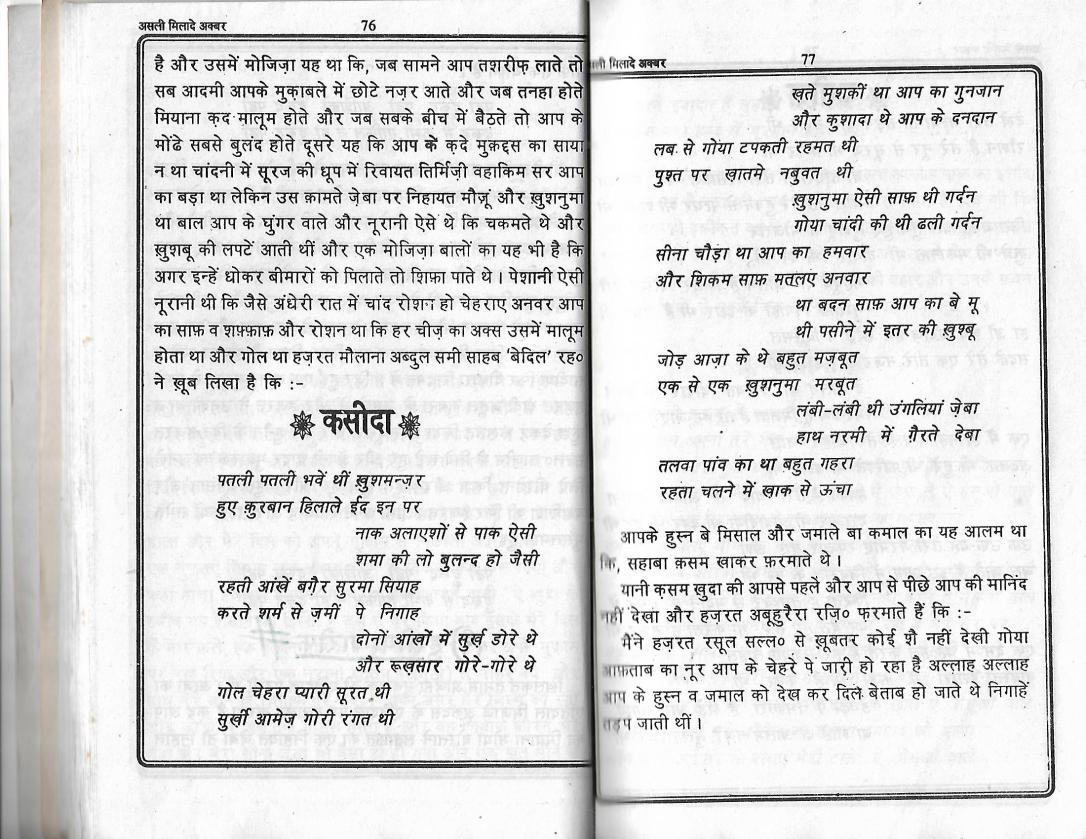 असली मिलादे अक्बर 76
है और उसमें मोजिज़ा यह था कि, जब सामने आप तशरीफ़ लाते तो
सब आदमी आपके मुक़ाबले में छोटे नज़र आते और जब तनहा होते
मियाना क़द मालूम होते और जब सबके बीच में बैठते तो आप के
मोंढे सबसे बुलंद होते दूसरे यह कि आप के क़दे मुक़द्दस का साया
न था चांदनी में सूरज की धूप में रिवायत तिर्मिज़ी वहाकिम सर आप
का बड़ा था लेकिन उस क़ामते ज़ेबा पर निहायत मौज़ू और ख़ुशनुमा
था बाल आप के घुंगर वाले और नूरानी ऐसे थे कि चकमते थे और
ख़ुशबू की लपटें आती थीं और एक मोजिज़ा बालों का यह भी है कि
अगर इन्हें धोकर बीमारों को पिलाते तो शिफ़ा पाते थे। पेशानी ऐसी
नूरानी थी कि जैसे अंधेरी रात में चांद रोशन हो चेहराए अनवर आप
का साफ़ व शफ़्फ़ाफ़ और रोशन था कि हर चीज़ का अक्स उसमें मालूम
होता था और गोल था हज़रत मौलाना अब्दुल समी साहब 'बेदिल' रह०
ने ख़ूब लिखा है कि :-
कसीदा
पतली पतली भवें थीं ख़ुशमन्ज़र
हुए क़ुरबान हिलाले ईद इन पर
नाक अलाएशों से पाक ऐसी
शमा की लो बुलन्द हो जैसी
रहती आंखें बग़ैर सुरमा सियाह
करते शर्म से ज़मीं पे निगाह
दोनों आंखों में सुर्ख़ डोरे थे
और रूख़सार गोरे-गोरे थे
गोल चेहरा प्यारी सूरत थी
सुर्खी आमेज़ गोरी रंगत थी
मिलादे अक्बर 77
ख़ते मुशकीं था आप का गुनजान
और कुशादा थे आप के दनदान
लब से गोया टपकती रहमत थी
पुश्त पर खातमे नबुवत थी
ख़ुशनुमा ऐसी साफ़ थी गर्दन
गोया चांदी की थी ढली गर्दन
सीना चौड़ा था आप का हमवार
और शिकम साफ़ मतलए अनवार
था बदन साफ़ आप का बे मू
थी पसीने में इतर की ख़ुश्बू
जोड़ आज़ा के थे बहुत मज़बूत
एक से एक ख़ुशनुमा मरबूत
लंबी-लंबी थी उंगलियां ज़ेबा
हाथ नरमी में ग़ैरते देबा
तलवा पांव का था बहुत गहरा
रहता चलने में ख़ाक से ऊंचा
आपके हुस्न बे मिसाल और जमाले बा कमाल का यह आलम था
कि, सहाबा क़सम खाकर फ़रमाते थे।
यानी क़सम ख़ुदा की आपसे पहले और आप से पीछे आप की मानिंद
नहीं देखा और हज़रत अबूहुरैरा रज़ि० फरमाते हैं कि :-
मैंने हज़रत रसूल सल्ल० से ख़ूबतर कोई शै नहीं देखी गोया
आफ़ताब का नूर आप के चेहरे पे जारी हो रहा है अल्लाह अल्लाह
आप के हुस्न व जमाल को देख कर दिले बेताब हो जाते थे निगाहें
तड़प जाती थीं।